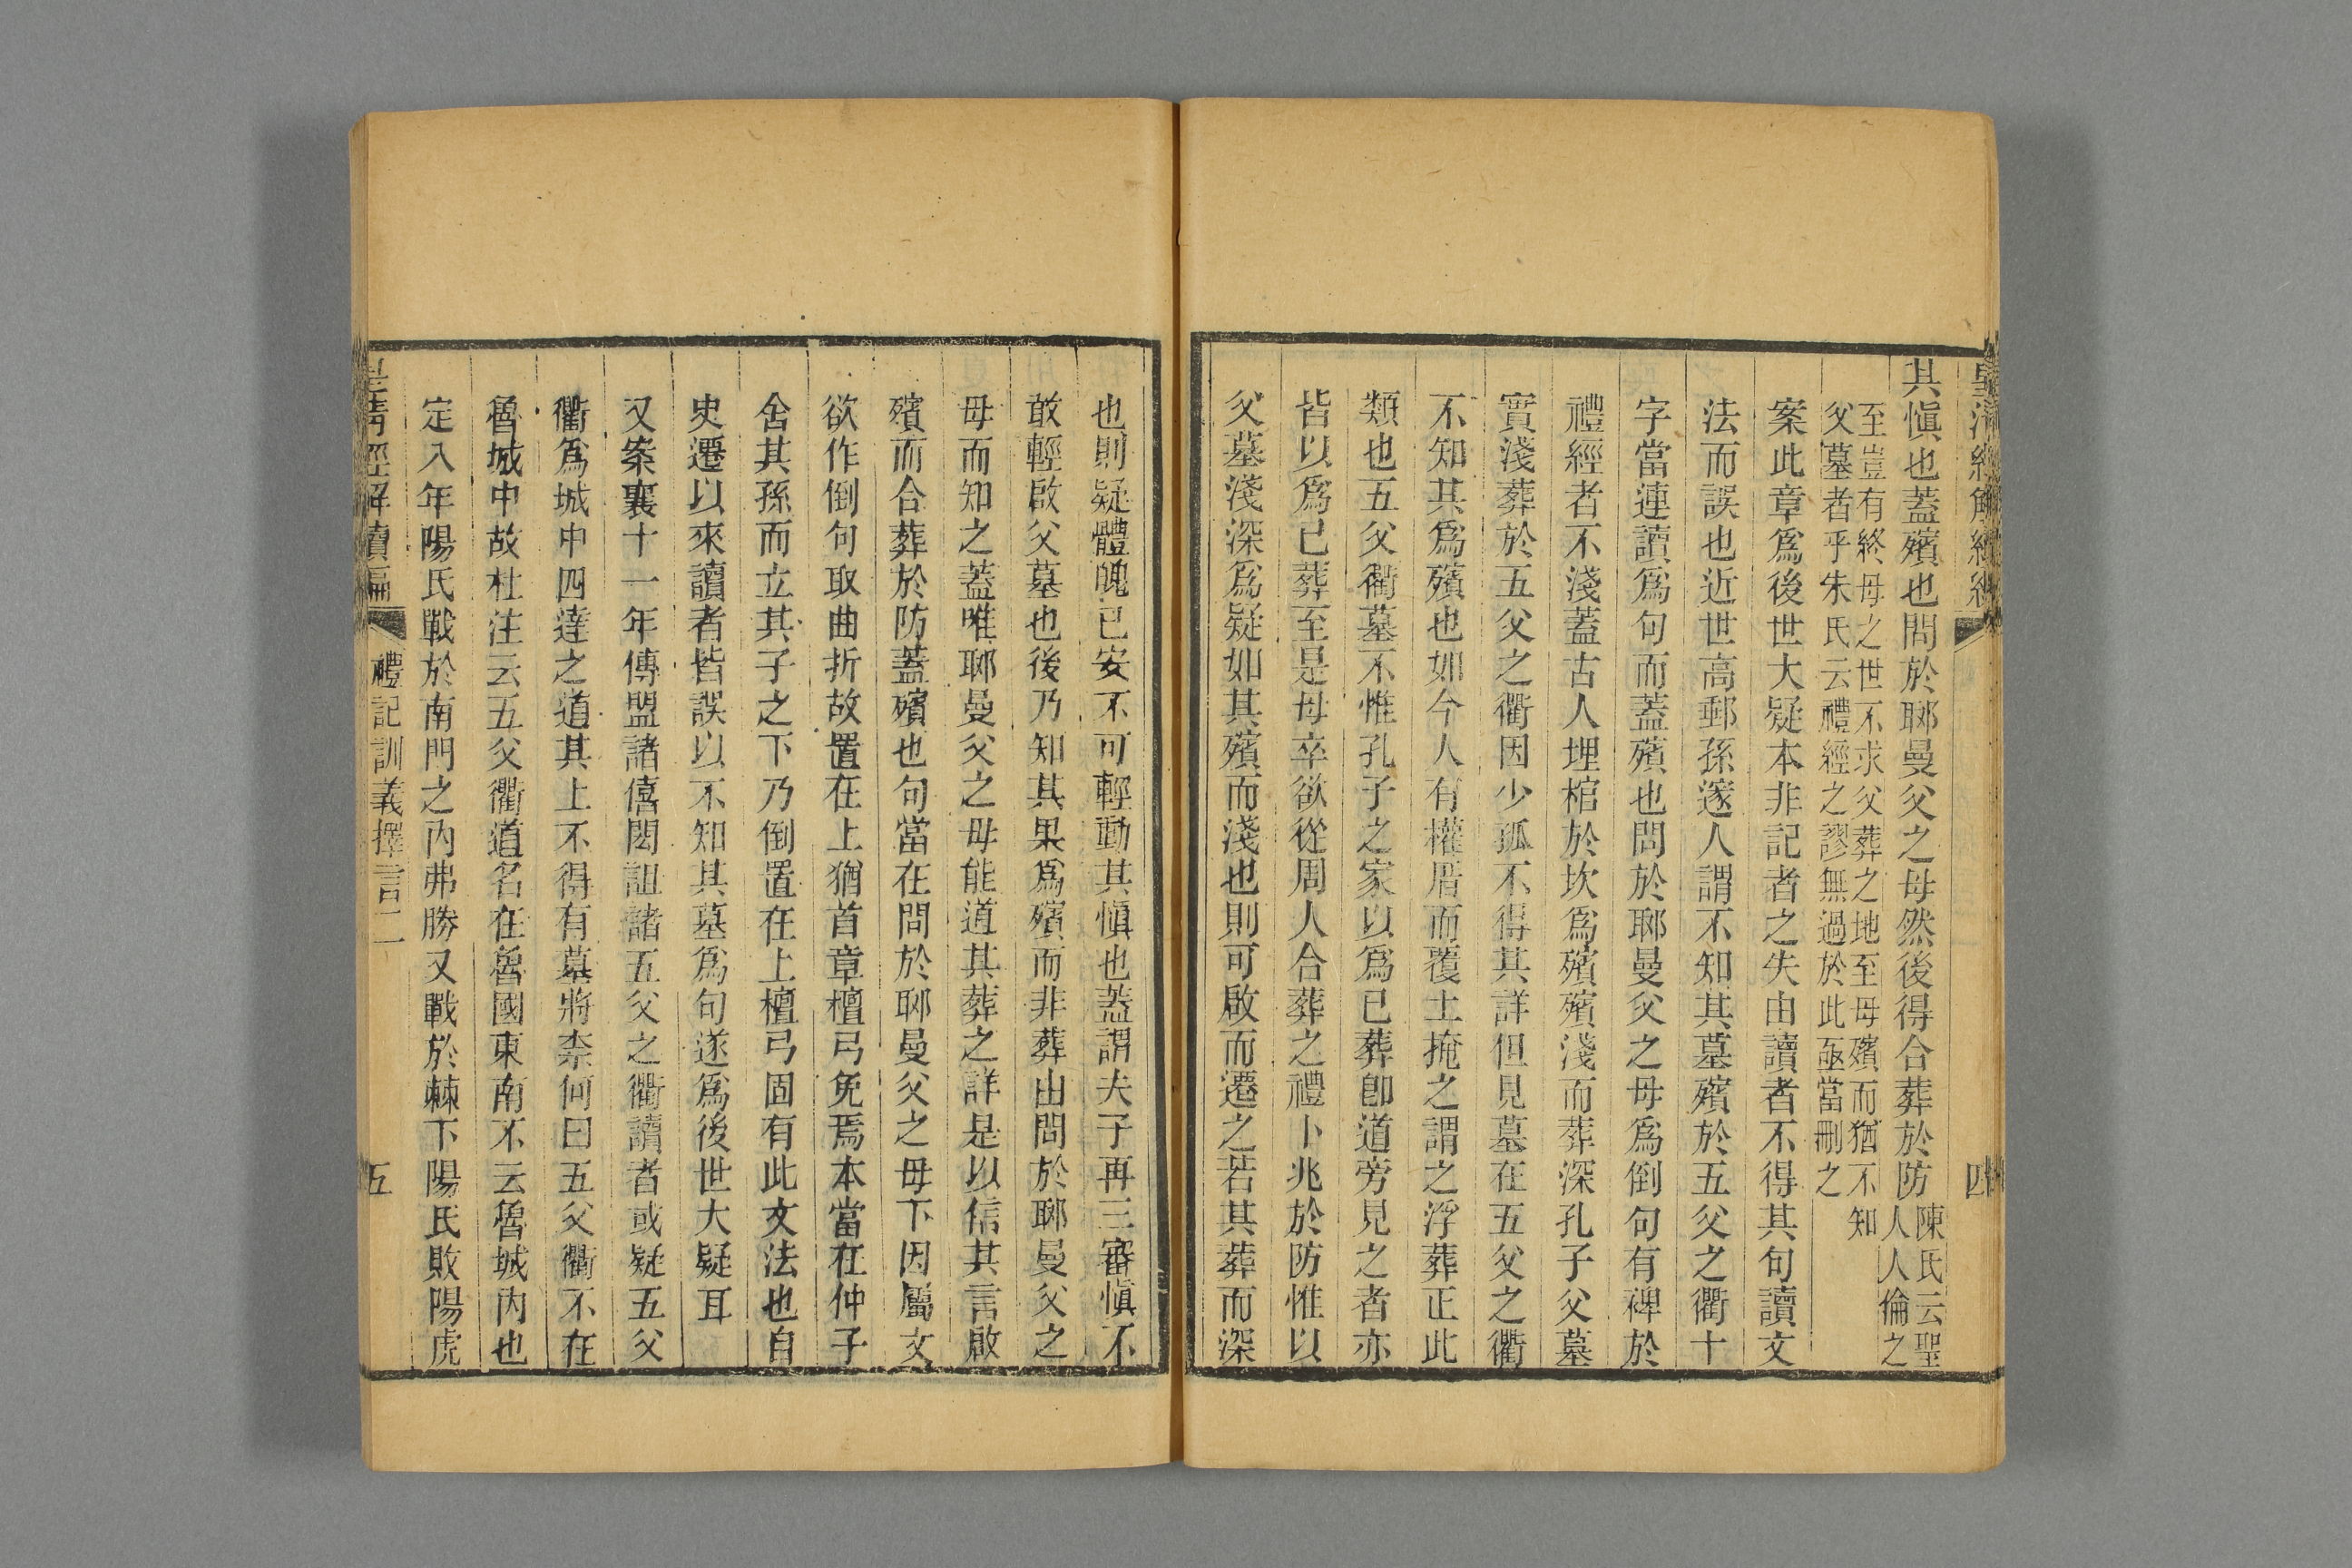 皇清經解續編
四
其慎也蓋殯也問於郰曼父之母然後得合葬於防陳氏云聖
人人倫之
至豈有終母之世不求父葬之地至母殯而猶不知
父墓者乎朱氏云禮經之謬無過於此亟當刪之
案此章爲後世大疑本非記者之失由讀者不得其句讀文
法而誤也近世高郵孫邃人謂不知其墓殯於五父之衢十
字當連讀爲句而蓋殯也問於郰曼父之母爲倒句有裨於
禮經者不淺蓋古人埋棺於坎爲殯殯淺而葬深孔子父墓
實淺葬於五父之衢因少孤不得其詳但見墓在五父之衢
不知其爲殯也如今人有權厝而覆土掩之謂之浮葬正此
類也五父衢墓不惟孔子之家以爲已葬卽道旁見之者亦
皆以爲已葬至是母卒欲從周人合葬之禮卜兆於防惟以
父墓淺深爲疑如其殯而淺也則可啟而遷之若其葬而深
也則疑體魄已安不可輕動其慎也蓋謂夫子再三審慎不
敢輕啟父墓也後乃知其果爲殯而非葬由問於郰曼父之
母而知之蓋唯郰曼父之母能道其葬之詳是以信其言啟
殯而合葬於防蓋殯也句當在問於郰曼父之母下因屬文
欲作倒句取曲折故置在上猶首章檀弓免焉本當在仲子
舍其孫而立其子之下乃倒置在上檀弓固有此文法也自
史遷以來讀者皆誤以不知其墓爲句遂爲後世大疑耳
又案襄十一年傳盟諸僖閎詛諸五父之衢讀者或疑五父
衢爲城中四達之道其上不得有墓將柰何曰五父衢不在
魯城中故杜注云五父衢道名在魯國東南不云魯城內也
定八年陽氏戰於南門之內弗勝又戰於棘下陽氏敗陽虎
皇清經解續編
禮記訓義擇言二
五